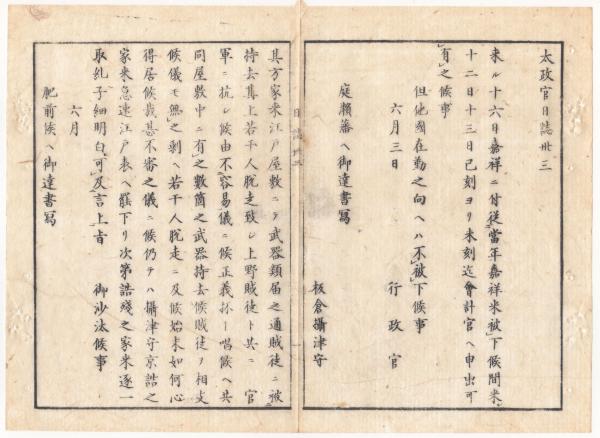 太政官日誌卅三
来ル十六日嘉祥ニ付従当年嘉祥米被下候間来
十二日十三日巳刻ヨリ未刻迄會計官ヘ申出可
有之候事
但他國在勤之向ヘハ不被下候事
六月三日
行政官
庭瀬藩ヘ御達書写
板倉攝津守
日誌卅三
其方家来江戸屋敷ニテ武器類届之通賊徒ニ被
持去其上若干人脱走致シ上野賊徒ト共ニ官
軍ニ抗シ候由不容易儀ニ候正義抔ト唱候ヘ共
同屋敷中ニ有之数箇之武器持去候賊徒ヲ相支
候儀モ無之剰ヘ若干人脱走ニ及候始末如何心
得居候哉甚不審之儀ニ候仍テハ攝津守京詰之
家来急速江戸表ヘ罷下リ次第詰残之家来逐一
取糺子細明白可及言上旨
御沙汰候事
六月
肥前候ヘ御達書写